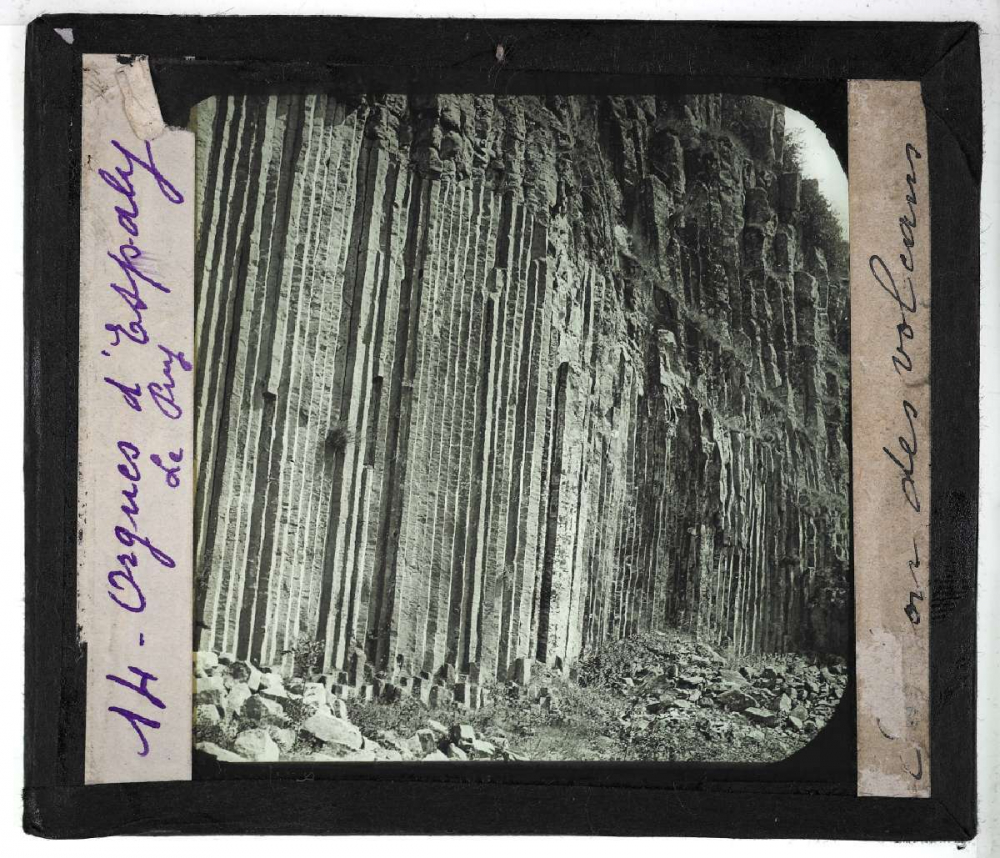 14 - Orgues d'Espaly
Le Puy
des volcans